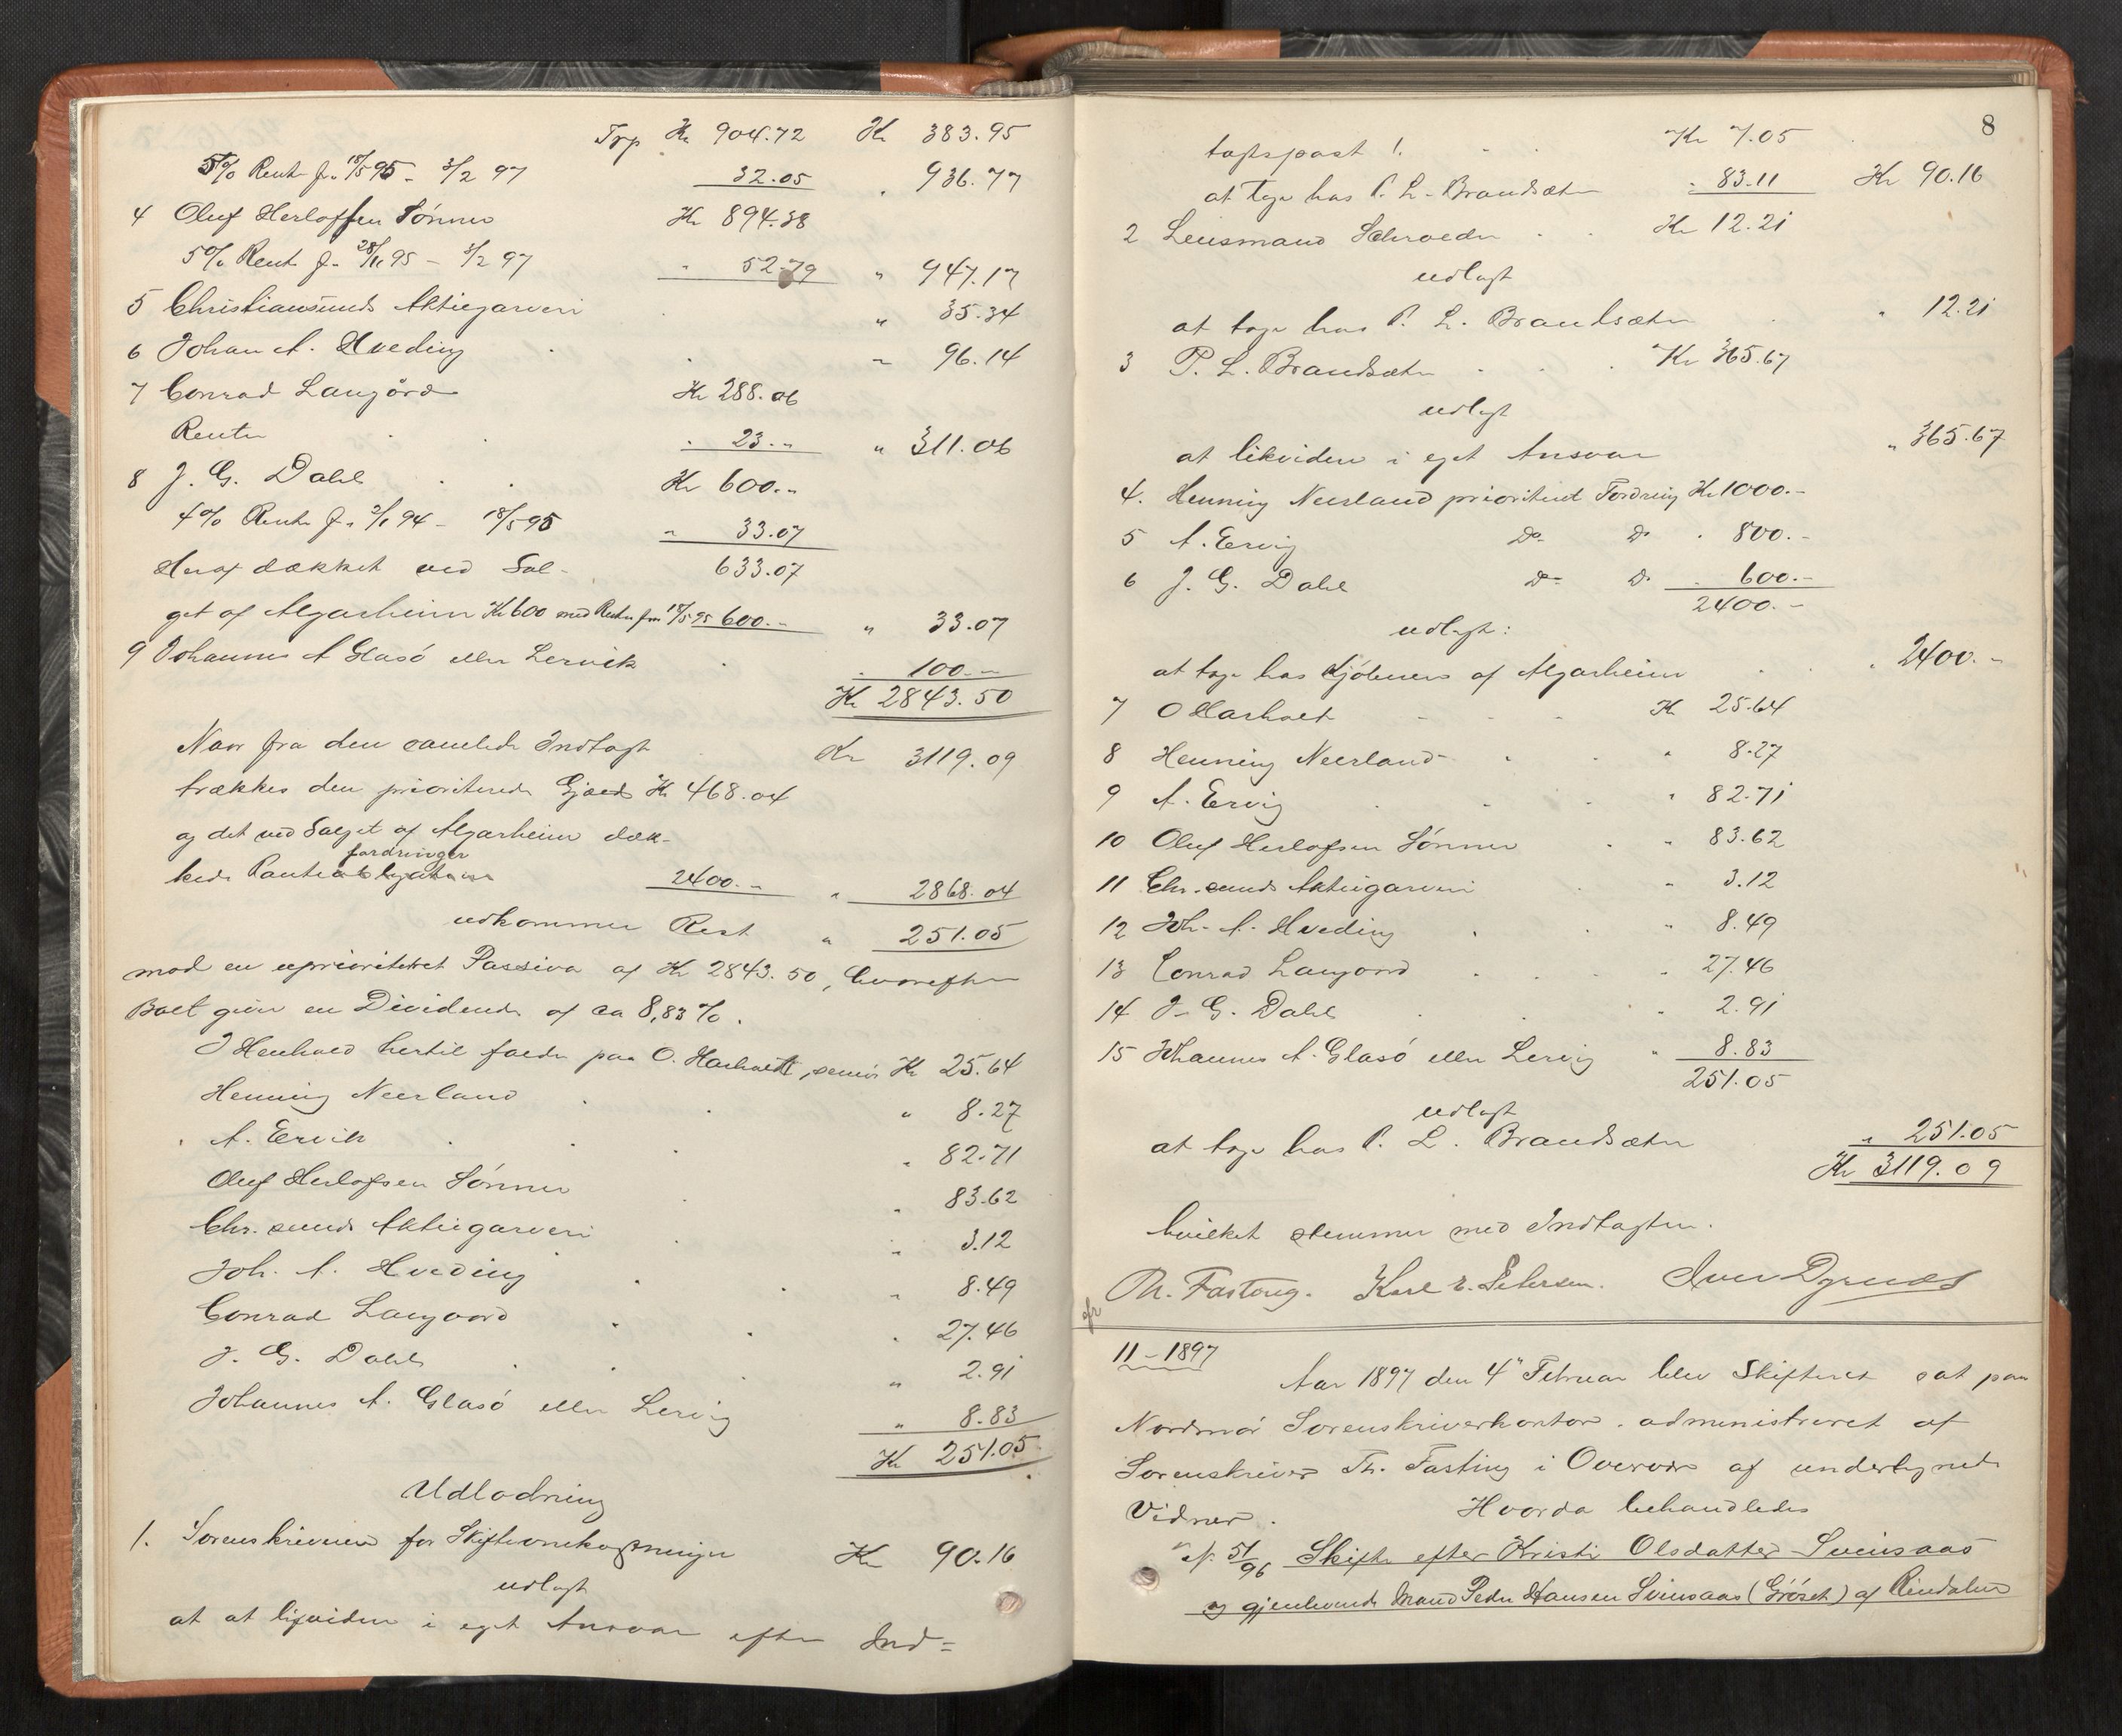 Trp Kr 904.72 Kr 383.95
5% Rente fr. 18/5 95 - 3/2 97 32.05 " 936.77
4 Oluf Herlofsen Sønner Kr 894.38
5% Rente fr. 28/11 95 - 3/2 97 " 52.79 " 947.17
5 Christiansunds Aktiegarveri " 35.34
6 Johan A. Hveding " 96.14
7 Conrad Langörd Kr 288.06
Renter " 23.- " 311.06
8 J. G. Dahl Kr 600.-
4% Rente fr. 2/1 94 - 18/5 95 " 33.07
Heraf dækket ved Sal- 633.07
get af Algarheim Kr 600 med Renter fra 18/5 95 600.- " 33.07
9 Johannes A Glasö eller Lervik " 100.-
Kr 2843.50
Naar fra den samlede Indtægt Kr 3119.09
trækkes den prioriterede Gjæld Kr 468.04
og det ved Salget af Algarheim dæk-
fordringer
kede Panteobligationer 2400.- " 2868.04
udkommer Rest " 251.05
mod en uprioriteret Passiva af Kr 2843.50, hvorefter
Boet giver en Dividende af ca 8,83%.
I Henhold hertil falder paa O. Harholdt, senior Kr 25.64
Henning Neerland " 8.27
A. Ervik " 82.71
Oluf Herlofsen Sønner " 83.62
Chr.sunds Aktiegarveri " 3.12
Joh. A. Hveding " 8.49
Conrad Langoord " 27.46
J. G. Dahl " 2.91
Johannes A. Glasö eller Lervig " 8.83
Kr 251.05
Udlodning
1. Sorenskriveren for Skifteomkostninger Kr 90.16
udlagt
at at liqvidere i eget Ansvar efter Ind=
8
tægtspost 1. Kr 7.05
at tage hos P. L. Brandsæter " 83.11 Kr 90.16
2 Lensmand Schroeder Kr 12.21
udlagt
at tage hos P. L. Brandsæter " 12.21
3 P. L. Brandsæter Kr 365.67
udlagt
at likvidere i eget Ansvar " 365.67
4. Henning Neerland prioriteret Fordring Kr 1000.-
5 A. Ervig Do Do " 800.-
6 J. G. Dahl Do Do " 600.-
2400.-
udlagt:
at tage hos Kjøberen af Algarheim " 2400.-
7 O Harholt Kr 25.64
8 Henning Neerland " 8.27
9 A. Ervig " 82.71
10 Oluf Herlofsen Sønner " 83.62
11 Chr.sunds Aktiegarveri " 3.12
12 Joh. A. Hveding " 8.49
13 Conrad Langoord " 27.46
14 J. G. Dahl " 2.91
15 Johannes A. Glasö eller Lervig " 8.83
251.05
udlagt
at tage hos P. L. Brandsæter " 251.05
Kr 3119.09
hvilket stemmer med Indtægten.
Th. Fasting. Karl E. Petersen. Iver Dyrnes
11 - 1897
Aar 1897 den 4' Februar blev Skifteret sat paa
Nordmör Sorenskriverkontor administreret af
Sorenskriver Th. Fasting i Overvær af undertegnede
Vidner. Hvorda behandledes
N. 51/96 Skifte efter Kristi Olsdatter Svinsaas
og gjenlevende Mand Peder Hansen Svinsaas (Gröset) af Rindalen